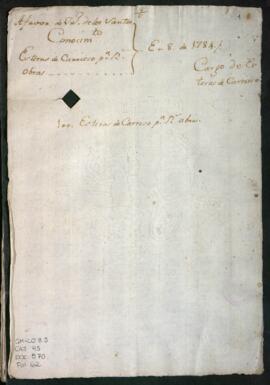 A favor de Val. de los Santos
Conocim.to
Esteras de Carrizo p.a R.s
obras
En 8. de 1784
Cargo de Es
teras de Carrizo
100 Esteras de Carrizo p.a R.s obras
GM-CO 83
CAJ 45
DOC 570
Fol 62